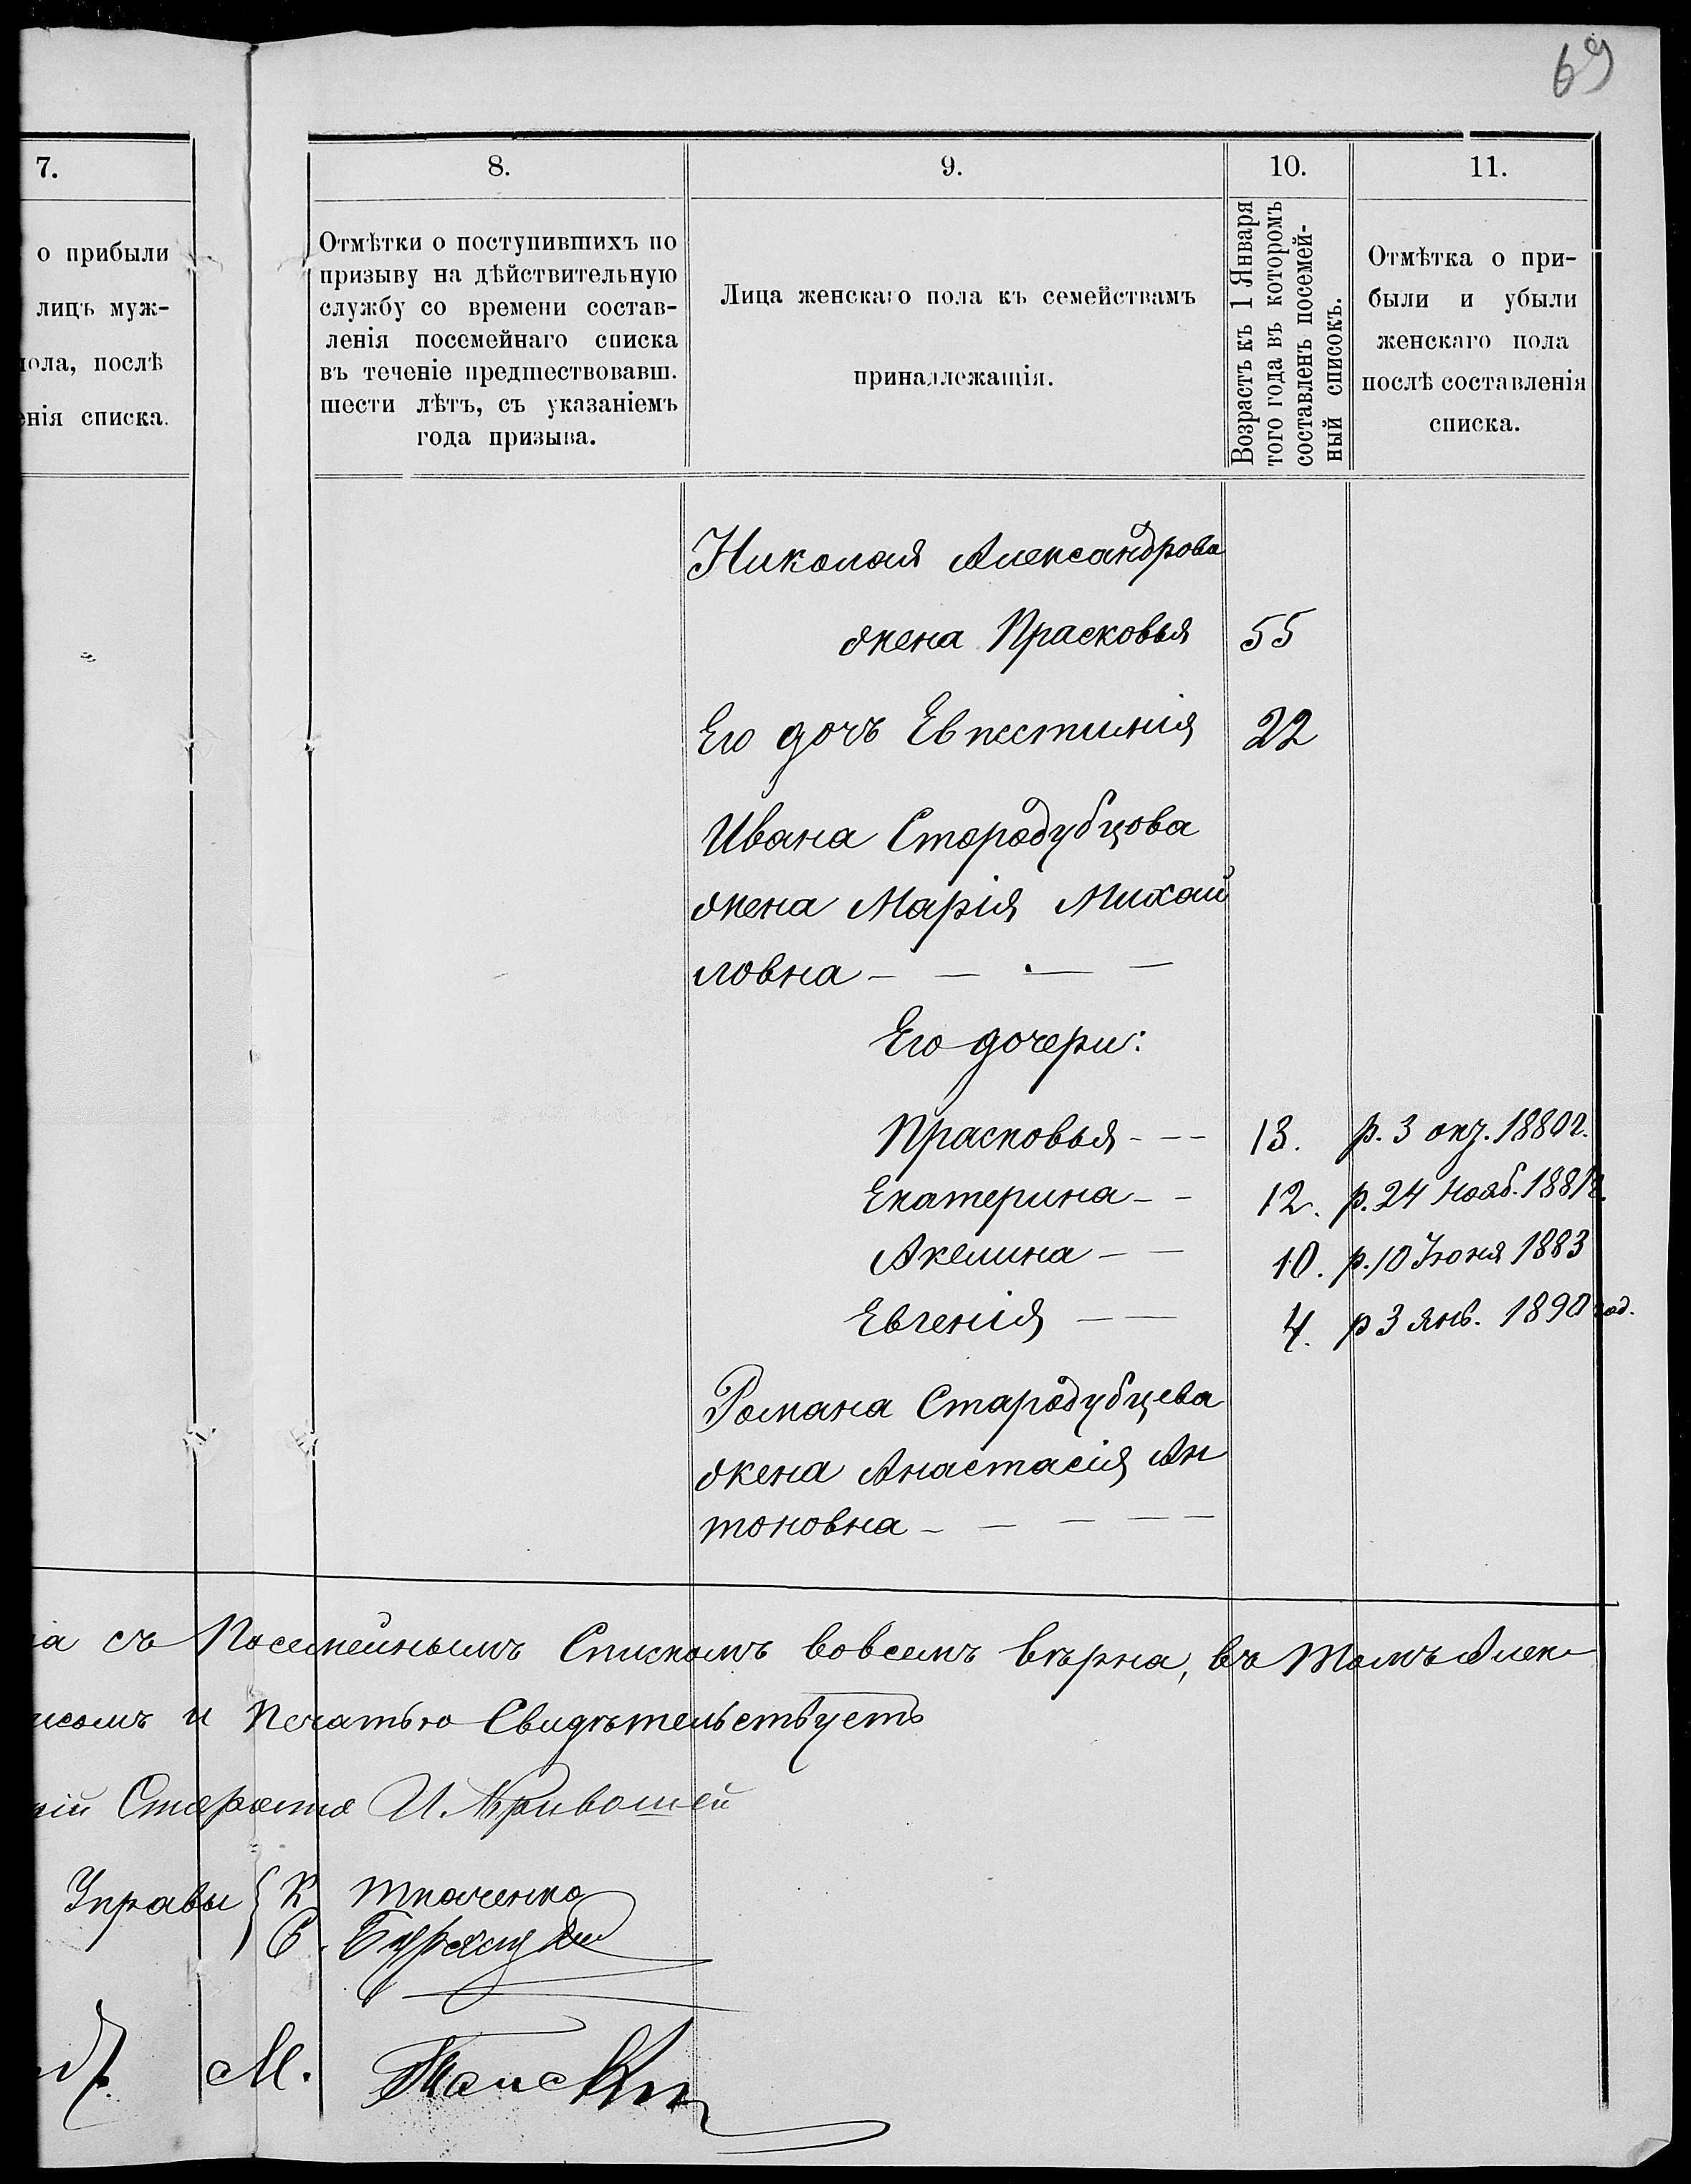 69
7.
о прибыли
лицъ муж-
пола, послѣ
енія списка.
8.
Отмѣтки о поступившихъ по
призыву на дѣйствительную
службу со времени состав-
ленія посемейнаго списка
въ теченіе предшествовавш.
шести лѣтъ, съ указаніемъ
года призыва.
9.
Лица женскаго пола къ семействамъ
принадлежащія.
10.
Возрастъ къ 1 Января
того года въ которомъ
составленъ посемей-
ный списокъ.
11.
Отмѣтка о при-
были и убыли
женскаго пола
послѣ составленія
списка.
Николая Александрова
жена Прасковья 55
Его дочь Евпестинія 22
Ивана Стародубцова
жена Марія Михай
ловна - - - -
Его дочери:
Прасковья - - - 13. р. 3 окт. 1880 г.
Екатерина - - 12. р. 24 нояб. 1881 г.
Акелина - - 10. р. 10 Іюня 1883
Евгенія - - 4. р 3 янв. 1890 год.
Романа Стародубцева
жена Анастасія Ан
тоновна - - - - -
на съ Посемейнымъ Спискомъ вовсемъ вѣрна, въ томъ
исомъ и Печатью Свидѣтельствуетъ
кій Староста И. Кривошей
Управы { К Ткаченко
С.
М.